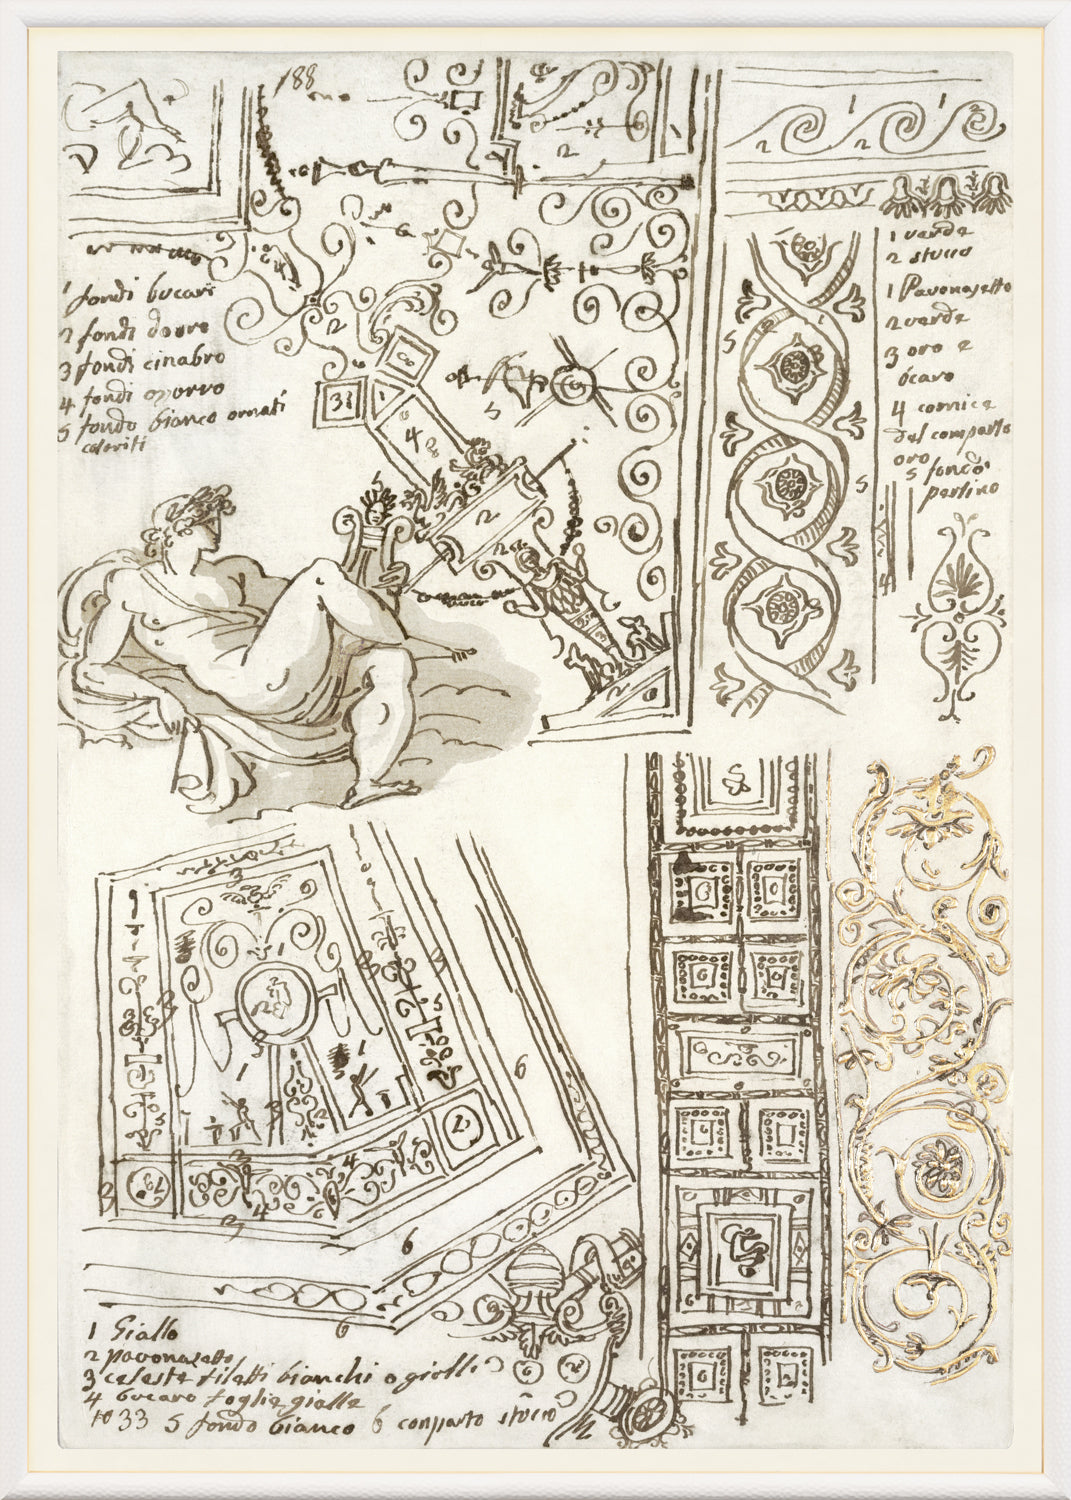 188
1 fondi bucari
2 fondi d'oro
3 fondi cinabro
4 fondi
5 fondo bianco ornati
coloriti
1 verde
2 stucco
1 Pavonazetto
2 verde
3 oro e
bcaro
4 cornice
del comparto
oro
5 fondo
portino
1 Giallo
2 pavonazetto
3 celeste filetti bianchi o gielli
4 bucaro foglie gialle
to 33 5 fondo bianco 6 conparto stucco